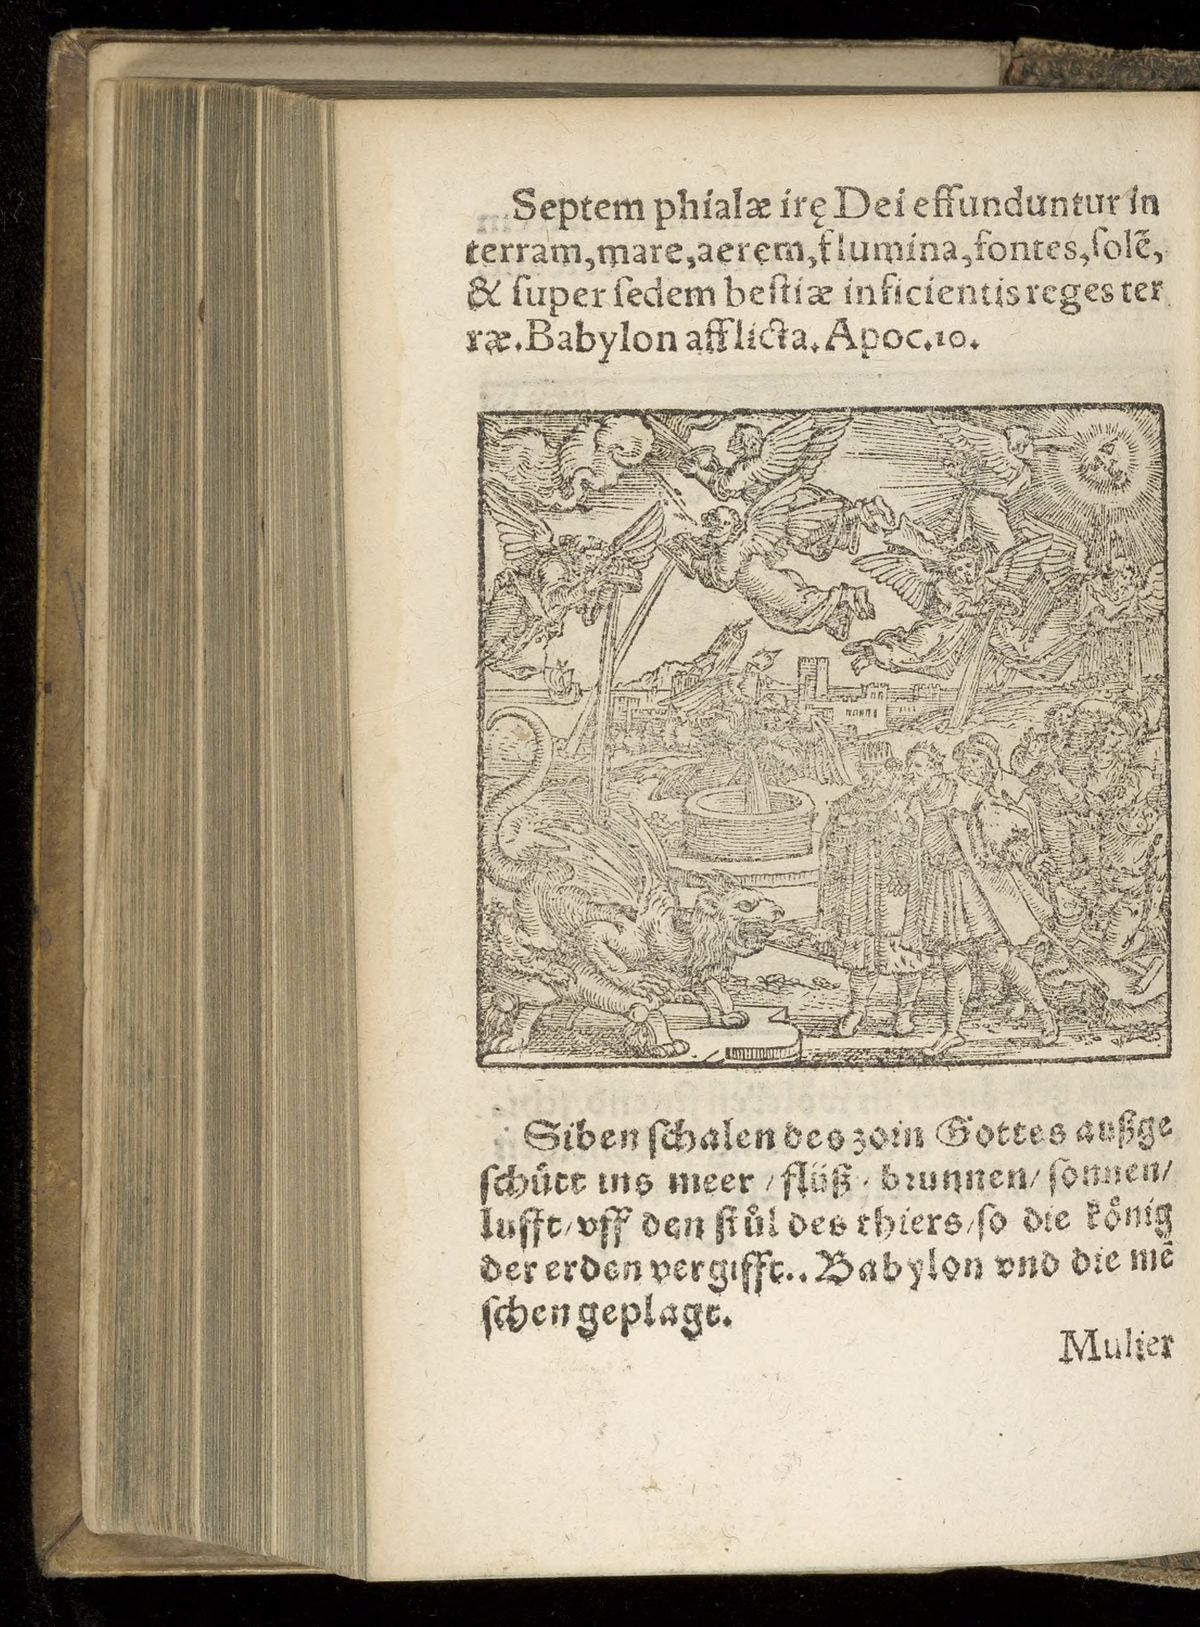 Septem phialæ irę Dei effunduntur in
terram,mare,aerem,flumina,fontes,ſolē,
& ſuper ſedem beſtiæ inficientis reges ter
ræ.Babylon afflicta.Apoc.10.
Siben ſchalen des zoꝛn Gottes auſzge
ſchütt ins meer / flüſz / bꝛunnen/ ſonnen/
lufft/vff den ſtůl des thiers/ſo die künig
der erden vergifft.. Babylon vnd die mē
ſchen geplagt.
Mulier